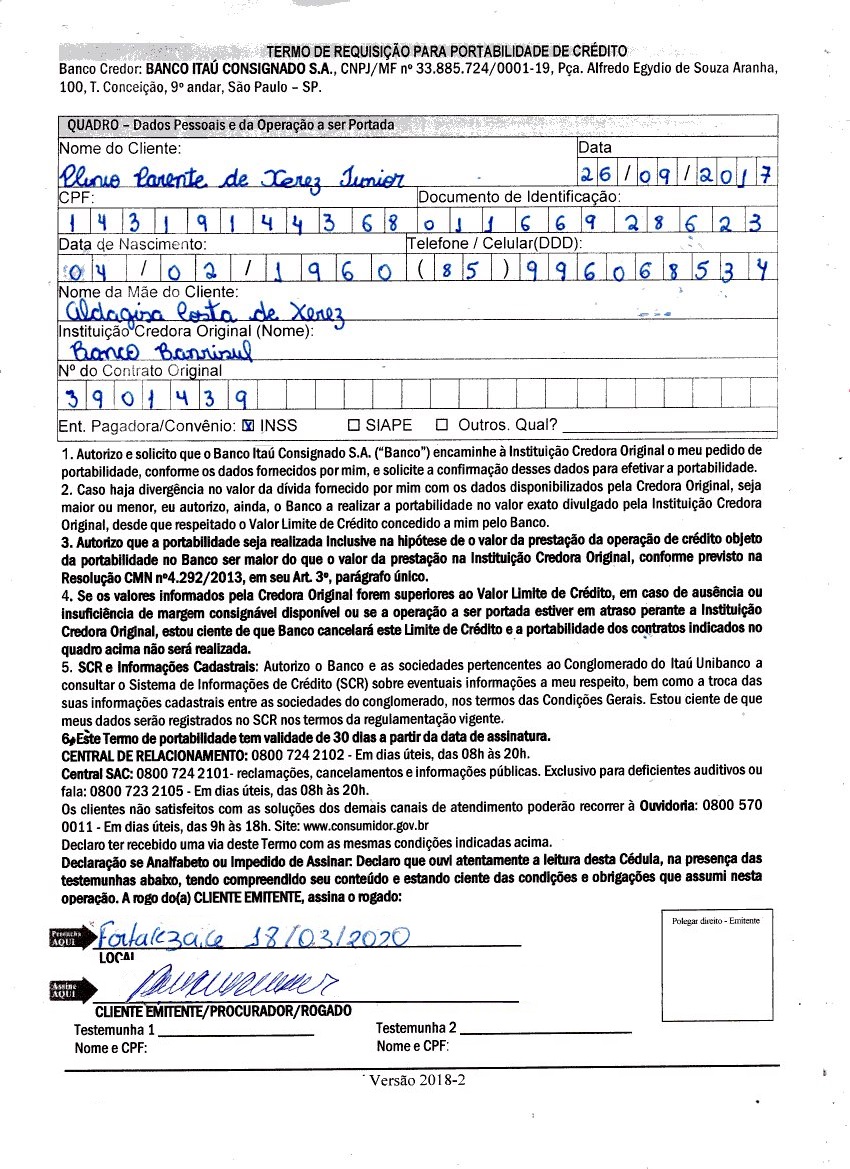 TERMO DE REQUISIÇÃO PARA PORTABILIDADE DE CRÉDITO
Banco Credor: BANCO ITAÚ CONSIGNADO S.A., CNPJ/MF nº 33.885.724/0001-19, Pça. Alfredo Egydio de Souza Aranha,
100, T. Conceição, 9º andar, São Paulo – SP.
QUADRO – Dados Pessoais e da Operação a ser Portada
Nome do Cliente: Data
Plinio Parente de Xerez Junior 26/09/2017
CPF: Documento de Identificação:
14319144368 01166928623
Data de Nascimento: Telefone / Celular(DDD):
04/02/1960 (85)996068534
Nome da Mãe do Cliente:
Aldagisa Costa de Xerez
Instituição Credora Original (Nome):
Banco Banrisul
Nº do Contrato Original
3901439
Ent. Pagadora/Convênio: ☒ INSS ☐ SIAPE ☐ Outros. Qual?
1. Autorizo e solicito que o Banco Itaú Consignado S.A. (“Banco”) encaminhe à Instituição Credora Original o meu pedido de
portabilidade, conforme os dados fornecidos por mim, e solicite a confirmação desses dados para efetivar a portabilidade.
2. Caso haja divergência no valor da dívida fornecido por mim com os dados disponibilizados pela Credora Original, seja
maior ou menor, eu autorizo, ainda, o Banco a realizar a portabilidade no valor exato divulgado pela Instituição Credora
Original, desde que respeitado o Valor Limite de Crédito concedido a mim pelo Banco.
3. Autorizo que a portabilidade seja realizada inclusive na hipótese de o valor da prestação da operação de crédito objeto
da portabilidade no Banco ser maior do que o valor da prestação na Instituição Credora Original, conforme previsto na
Resolução CMN nº4.292/2013, em seu Art. 3º, parágrafo único.
4. Se os valores informados pela Credora Original forem superiores ao Valor Limite de Crédito, em caso de ausência ou
insuficiência de margem consignável disponível ou se a operação a ser portada estiver em atraso perante a Instituição
Credora Original, estou ciente de que Banco cancelará este Limite de Crédito e a portabilidade dos contratos indicados no
quadro acima não será realizada.
5. SCR e Informações Cadastrais: Autorizo o Banco e as sociedades pertencentes ao Conglomerado do Itaú Unibanco a
consultar o Sistema de Informações de Crédito (SCR) sobre eventuais informações a meu respeito, bem como a troca das
suas informações cadastrais entre as sociedades do conglomerado, nos termos das Condições Gerais. Estou ciente de que
meus dados serão registrados no SCR nos termos da regulamentação vigente.
6. Este Termo de portabilidade tem validade de 30 dias a partir da data de assinatura.
CENTRAL DE RELACIONAMENTO: 0800 724 2102 - Em dias úteis, das 08h às 20h.
Central SAC: 0800 724 2101- reclamações, cancelamentos e informações públicas. Exclusivo para deficientes auditivos ou
fala: 0800 723 2105 - Em dias úteis, das 08h às 20h.
Os clientes não satisfeitos com as soluções dos demais canais de atendimento poderão recorrer à Ouvidoria: 0800 570
0011 - Em dias úteis, das 9h às 18h. Site: www.consumidor.gov.br
Declaro ter recebido uma via deste Termo com as mesmas condições indicadas acima.
Declaração se Analfabeto ou Impedido de Assinar: Declaro que ouvi atentamente a leitura desta Cédula, na presença das
testemunhas abaixo, tendo compreendido seu conteúdo e estando ciente das condições e obrigações que assumi nesta
operação. A rogo do(a) CLIENTE EMITENTE, assina o rogado:
Polegar direito - Emitente
Preencha AQUI Fortaleza, ce 18/03/2020
LOCAL
Assine AQUI
CLIENTE EMITENTE/PROCURADOR/ROGADO
Testemunha 1 Testemunha 2
Nome e CPF: Nome e CPF:
Versão 2018-2